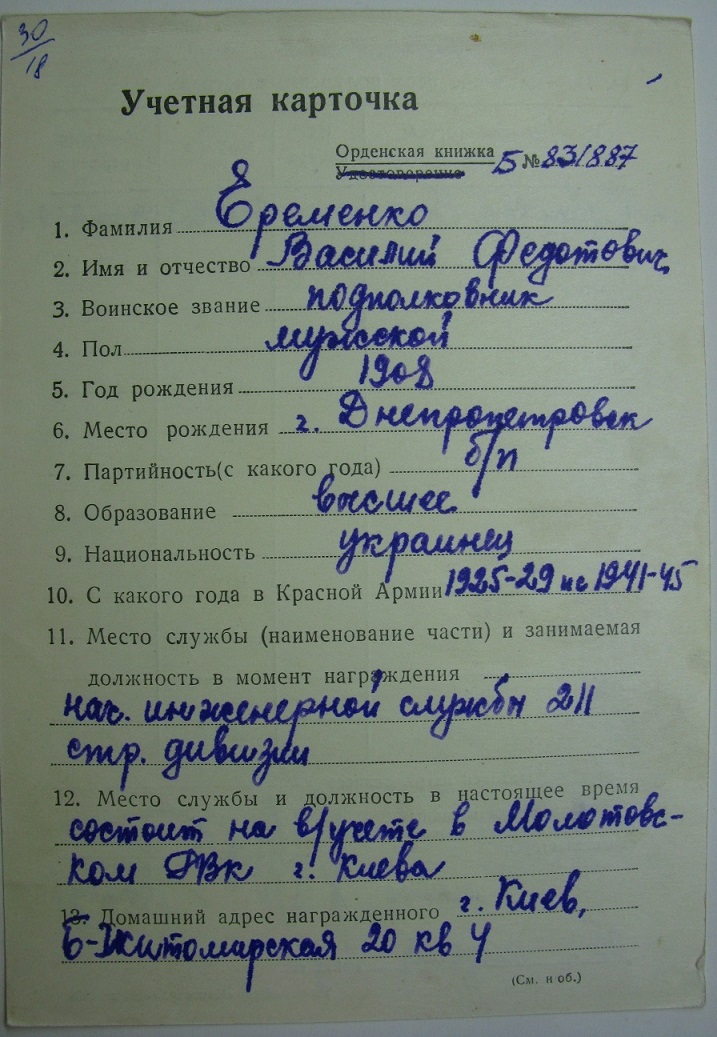 30/18
Учетная карточка
Орденская книжка Б № 831887
Удостоверение
1. Фамилия Еременко
2. Имя и отчество Василий Федотович
3. Воинское звание подполковник
4. Пол мужской
5. Год рождения 1908
6. Место рождения г. Днепропетровск
7. Партийность(с какого года) б/п
8. Образование высшее
9. Национальность украинец
10. С какого года в Красной Армии 1925-29 и с 1941-45
11. Место службы (наименование части) и занимаемая
должность в момент награждения
нач. инженерной службы 211
стр. дивизии
12. Место службы и должность в настоящее время
состоит на в/учете в Молотовс-
ком РВК г. Киева
13. Домашний адрес награжденного г. Киев,
Б-Житомирская 20 кв 4
(См. н об.)